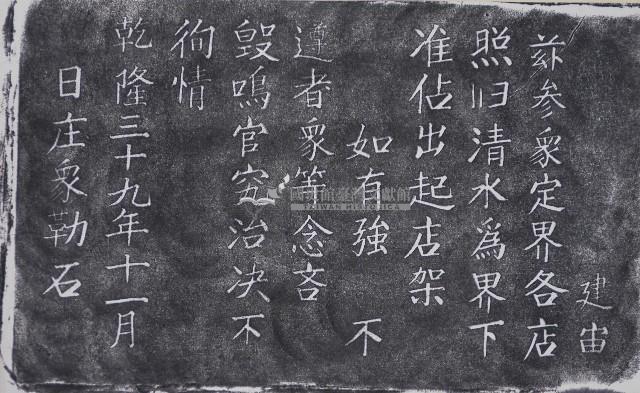 建宙
兹参衆定界各店
照归清水爲界下
准佔出起店架
如有強 不
遵者衆等念吝
毀鳴官究治决不
徇情
乾隆三十九年十一月
日庄衆勒石
國史館臺灣文獻館
TAIWAN HISTORICA